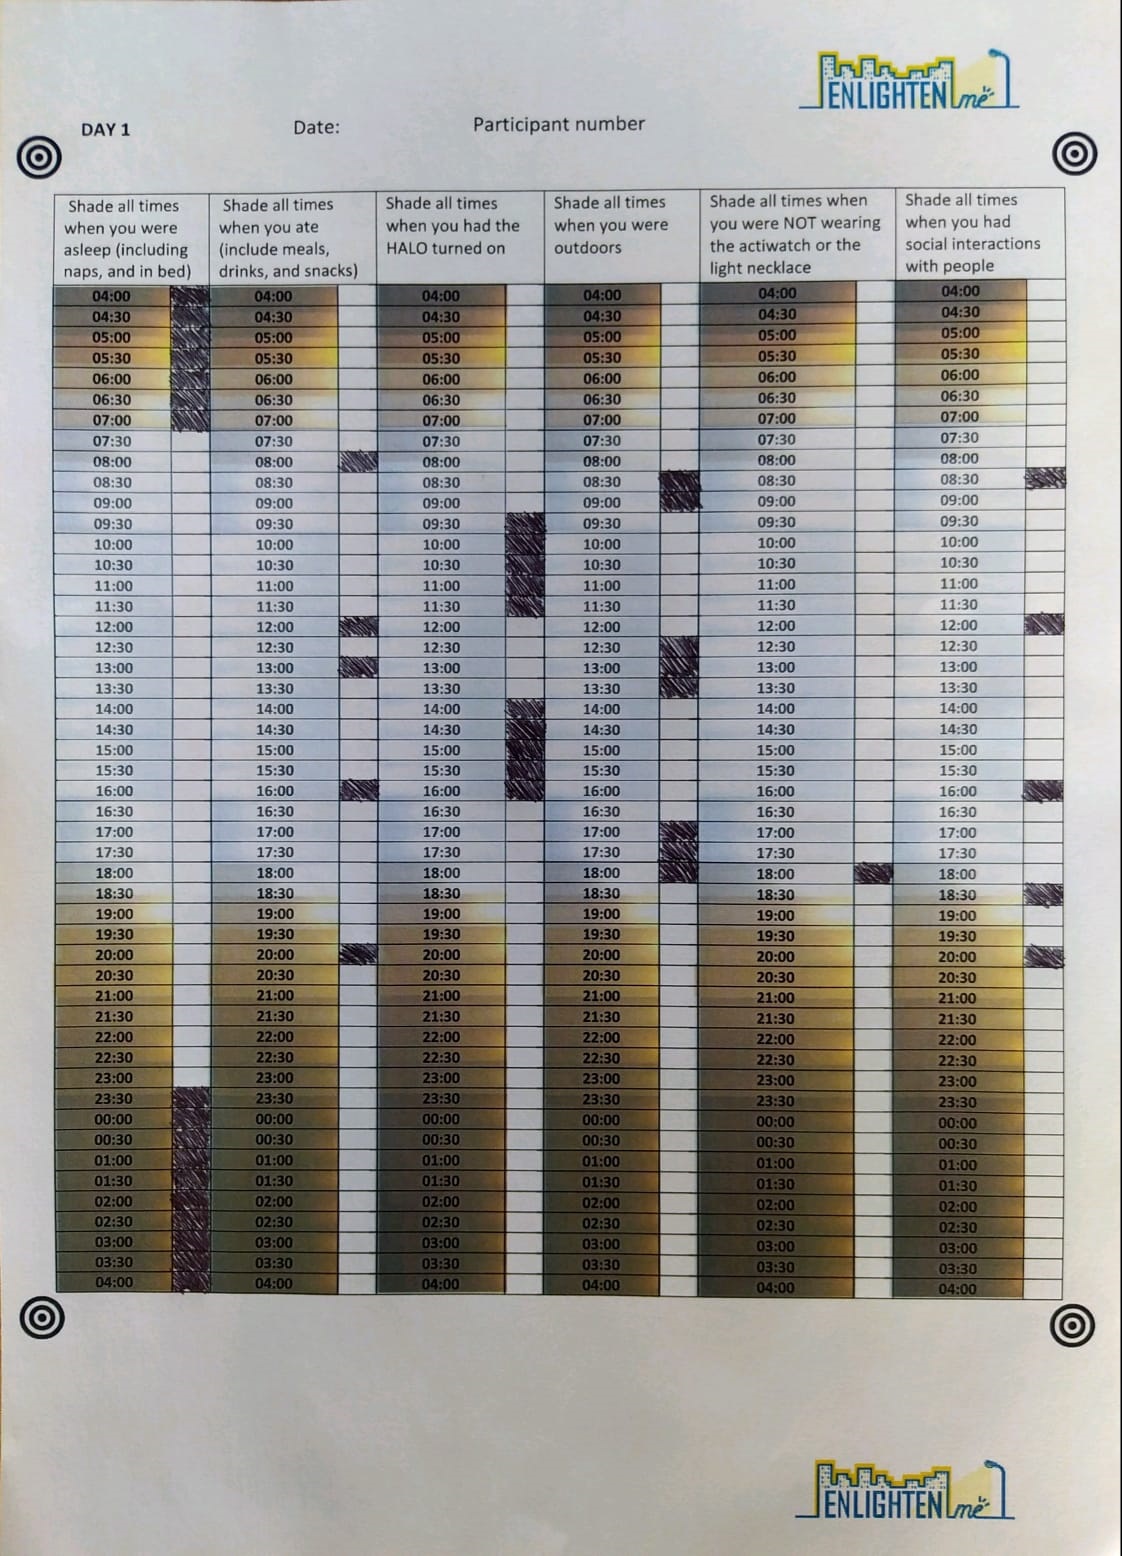 ENLIGHTEN me
DAY 1 Date: Participant number
Shade all times when you were asleep (including naps, and in bed)
Shade all times when you ate (include meals, drinks, and snacks)
Shade all times when you had the HALO turned on
Shade all times when you were outdoors
Shade all times when you were NOT wearing the actiwatch or the light necklace
Shade all times when you had social interactions with people
04:00 04:00 04:00 04:00 04:00 04:00
04:30 04:30 04:30 04:30 04:30 04:30
05:00 05:00 05:00 05:00 05:00 05:00
05:30 05:30 05:30 05:30 05:30 05:30
06:00 06:00 06:00 06:00 06:00 06:00
06:30 06:30 06:30 06:30 06:30 06:30
07:00 07:00 07:00 07:00 07:00 07:00
07:30 07:30 07:30 07:30 07:30 07:30
08:00 08:00 08:00 08:00 08:00 08:00
08:30 08:30 08:30 08:30 08:30 08:30
09:00 09:00 09:00 09:00 09:00 09:00
09:30 09:30 09:30 09:30 09:30 09:30
10:00 10:00 10:00 10:00 10:00 10:00
10:30 10:30 10:30 10:30 10:30 10:30
11:00 11:00 11:00 11:00 11:00 11:00
11:30 11:30 11:30 11:30 11:30 11:30
12:00 12:00 12:00 12:00 12:00 12:00
12:30 12:30 12:30 12:30 12:30 12:30
13:00 13:00 13:00 13:00 13:00 13:00
13:30 13:30 13:30 13:30 13:30 13:30
14:00 14:00 14:00 14:00 14:00 14:00
14:30 14:30 14:30 14:30 14:30 14:30
15:00 15:00 15:00 15:00 15:00 15:00
15:30 15:30 15:30 15:30 15:30 15:30
16:00 16:00 16:00 16:00 16:00 16:00
16:30 16:30 16:30 16:30 16:30 16:30
17:00 17:00 17:00 17:00 17:00 17:00
17:30 17:30 17:30 17:30 17:30 17:30
18:00 18:00 18:00 18:00 18:00 18:00
18:30 18:30 18:30 18:30 18:30 18:30
19:00 19:00 19:00 19:00 19:00 19:00
19:30 19:30 19:30 19:30 19:30 19:30
20:00 20:00 20:00 20:00 20:00 20:00
20:30 20:30 20:30 20:30 20:30 20:30
21:00 21:00 21:00 21:00 21:00 21:00
21:30 21:30 21:30 21:30 21:30 21:30
22:00 22:00 22:00 22:00 22:00 22:00
22:30 22:30 22:30 22:30 22:30 22:30
23:00 23:00 23:00 23:00 23:00 23:00
23:30 23:30 23:30 23:30 23:30 23:30
00:00 00:00 00:00 00:00 00:00 00:00
00:30 00:30 00:30 00:30 00:30 00:30
01:00 01:00 01:00 01:00 01:00 01:00
01:30 01:30 01:30 01:30 01:30 01:30
02:00 02:00 02:00 02:00 02:00 02:00
02:30 02:30 02:30 02:30 02:30 02:30
03:00 03:00 03:00 03:00 03:00 03:00
03:30 03:30 03:30 03:30 03:30 03:30
04:00 04:00 04:00 04:00 04:00 04:00
ENLIGHTEN me